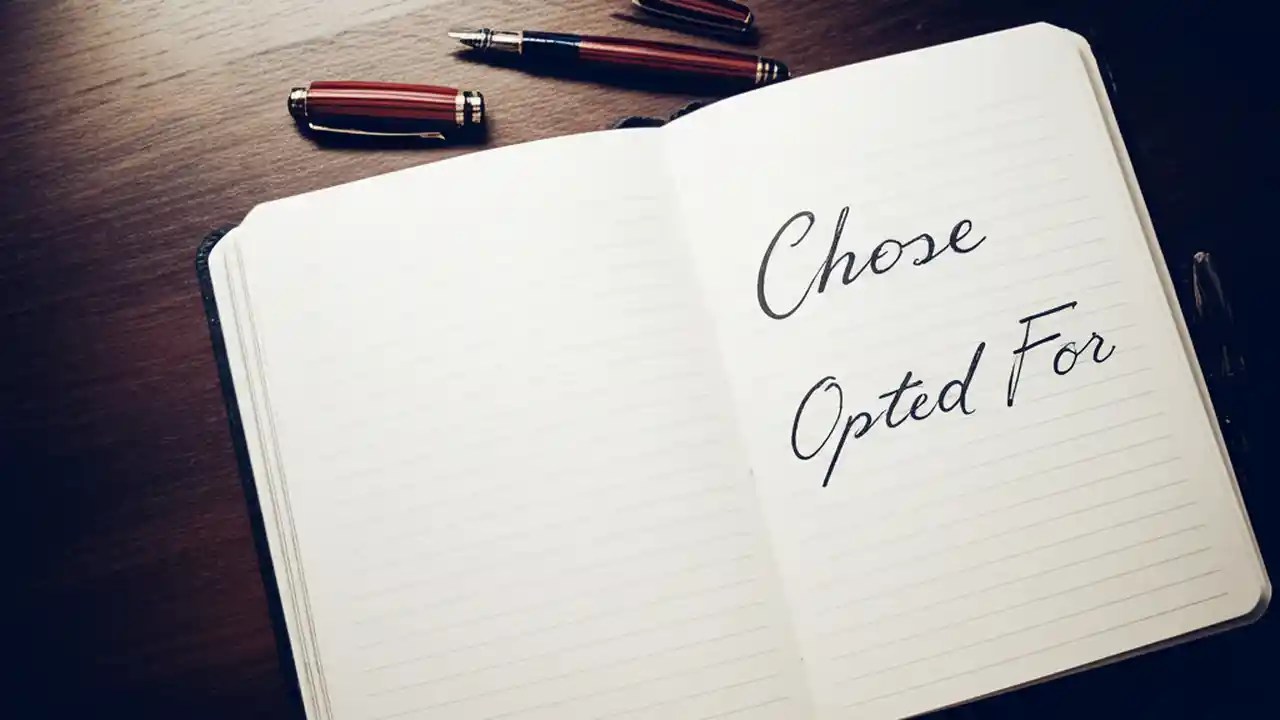 Chose
Opted For